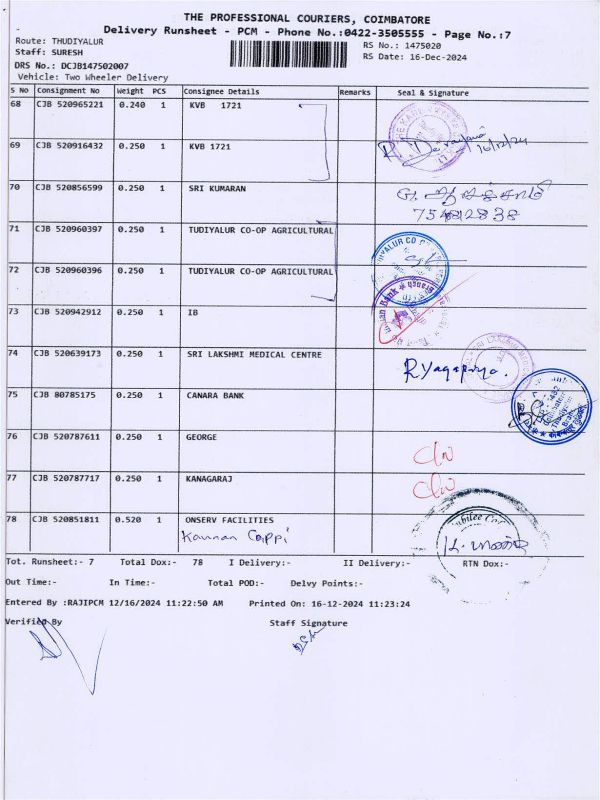 THE PROFESSIONAL COURIERS, COIMBATORE
Delivery Runsheet - PCM - Phone No.:0422-3505555 - Page No.:7
Route: THUDIYALUR
RS No.: 1475020
Staff: SURESH
RS Date: 16-Dec-2024
DRS No.: DCJB147502007
Vehicle: Two Wheeler Delivery
S No Consignment No Weight PCS Consignee Details Remarks Seal & Signature
68 CJB 520965221 0.240 1 KVB 1721
69 CJB 520916432 0.250 1 KVB 1721 16/12/24
70 CJB 520856599 0.250 1 SRI KUMARAN
71 CJB 520960397 0.250 1 TUDIYALUR CO-OP AGRICULTURAL
72 CJB 520960396 0.250 1 TUDIYALUR CO-OP AGRICULTURAL
73 CJB 520942912 0.250 1 IB
74 CJB 520639173 0.250 1 SRI LAKSHMI MEDICAL CENTRE
75 CJB 80785175 0.250 1 CANARA BANK
76 CJB 520787611 0.250 1 GEORGE
77 CJB 520787717 0.250 1 KANAGARAJ
78 CJB 520851811 0.520 1 ONSERV FACILITIES
Kannan
Tot. Runsheet:- 7 Total Dox:- 78 I Delivery:- II Delivery:- RTN Dox:-
Out Time:- In Time:- Total POD:- Delvy Points:-
Entered By :RAJIPCM 12/16/2024 11:22:50 AM Printed On: 16-12-2024 11:23:24
Verified By Staff Signature